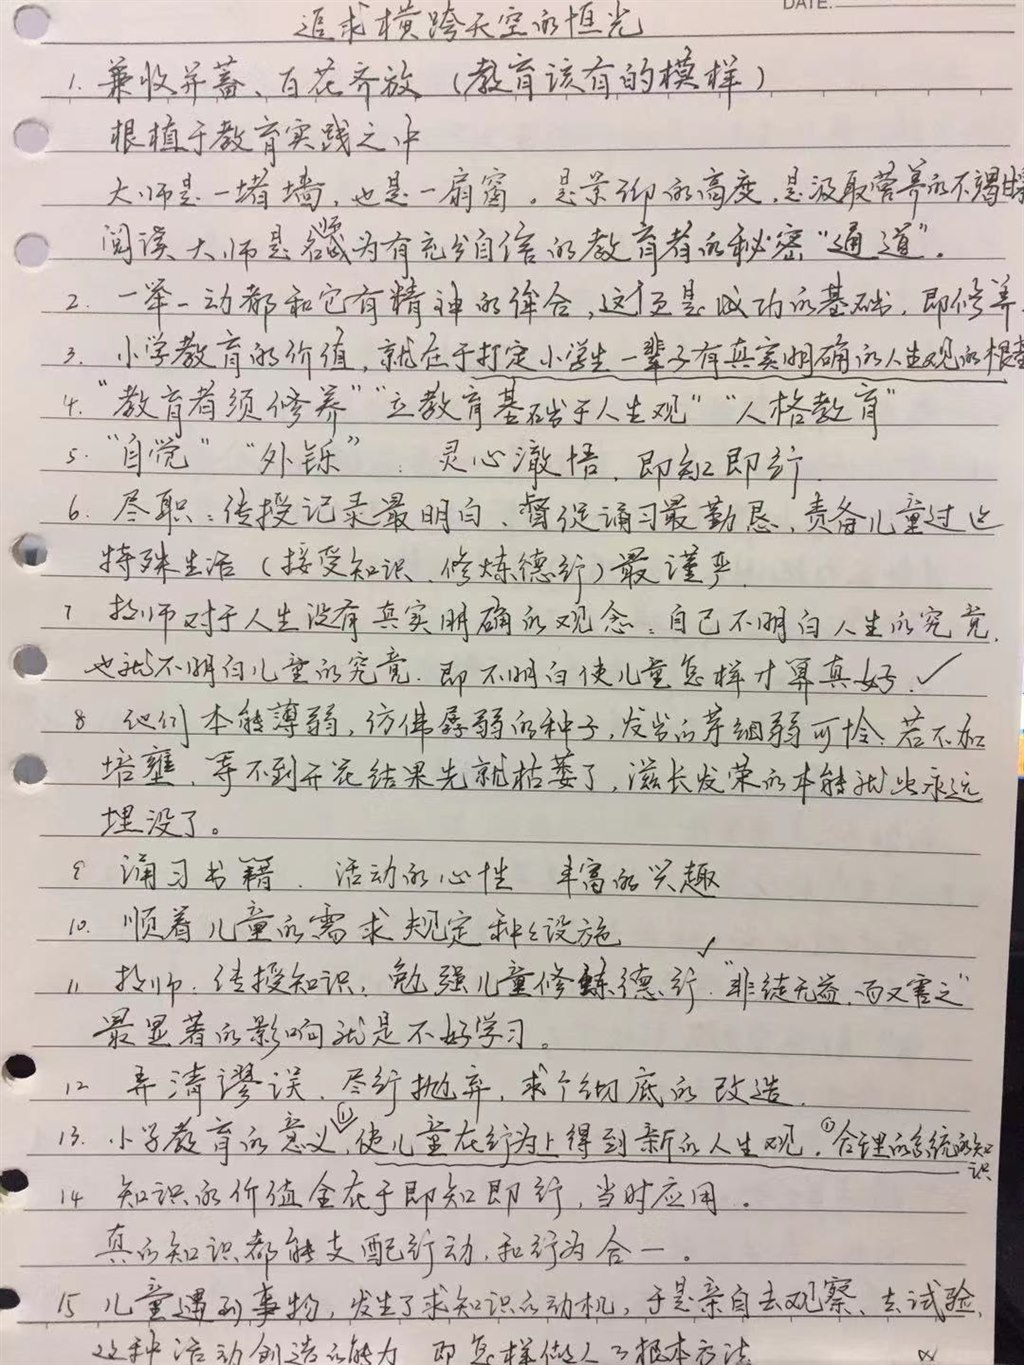 DATE:
追求横跨天空的恒光
1. 兼收并蓄、百花齐放 (教育该有的模样)
根植于教育实践之中
大师是一堵墙,也是一扇窗。是景仰的高度,是汲取营养的不竭
阅读大师是成为有充分自信的教育者的秘密“通道”。
2. 一举一动都和它有精神的结合,这便是成功的基础,即修养
3. 小学教育的价值,就在于打定小学生一辈子有真实明确的人生观的根基
4. “教育者须修养”“立教育基础于人生观”“人格教育”
5. “自觉” “外铄”: 灵心澈悟,即知即行
6. 尽职:传授记录最明白、督促诵习最勤恳、责备儿童过这
特殊生活 (接受知识、修炼德行) 最谨严
7 教师对于人生没有真实明确的观念:自己不明白人生的究竟,
也就不明白儿童的究竟.即不明白使儿童怎样才算真好.✓
8 他们本能薄弱,仿佛孱弱的种子,发出的芽细弱可怜.若不加
培壅,等不到开花结果先就枯萎了,滋长发荣的本能就此永远
埋没了。
9 诵习书籍. 活动的心性 丰富的兴趣
10. 顺着儿童的需求规定种种设施
11 教师:传授知识,勉强儿童修炼德行.“非徒无益,而又害之”
最显著的影响就是不好学习。
12 弄清谬误、尽行抛弃,求个彻底的改造.
13. 小学教育的意义,⑪使儿童在行为上得到新的人生观。①合理的系统的知识
14 知识的价值全在于即知即行,当时应用。
真的知识都能支配行动,和行为合一。
15 儿童遇到事物,发生了求知识的动机,于是亲自去观察、去试验,
这种活动创造的能力,即怎样做人的根本方法